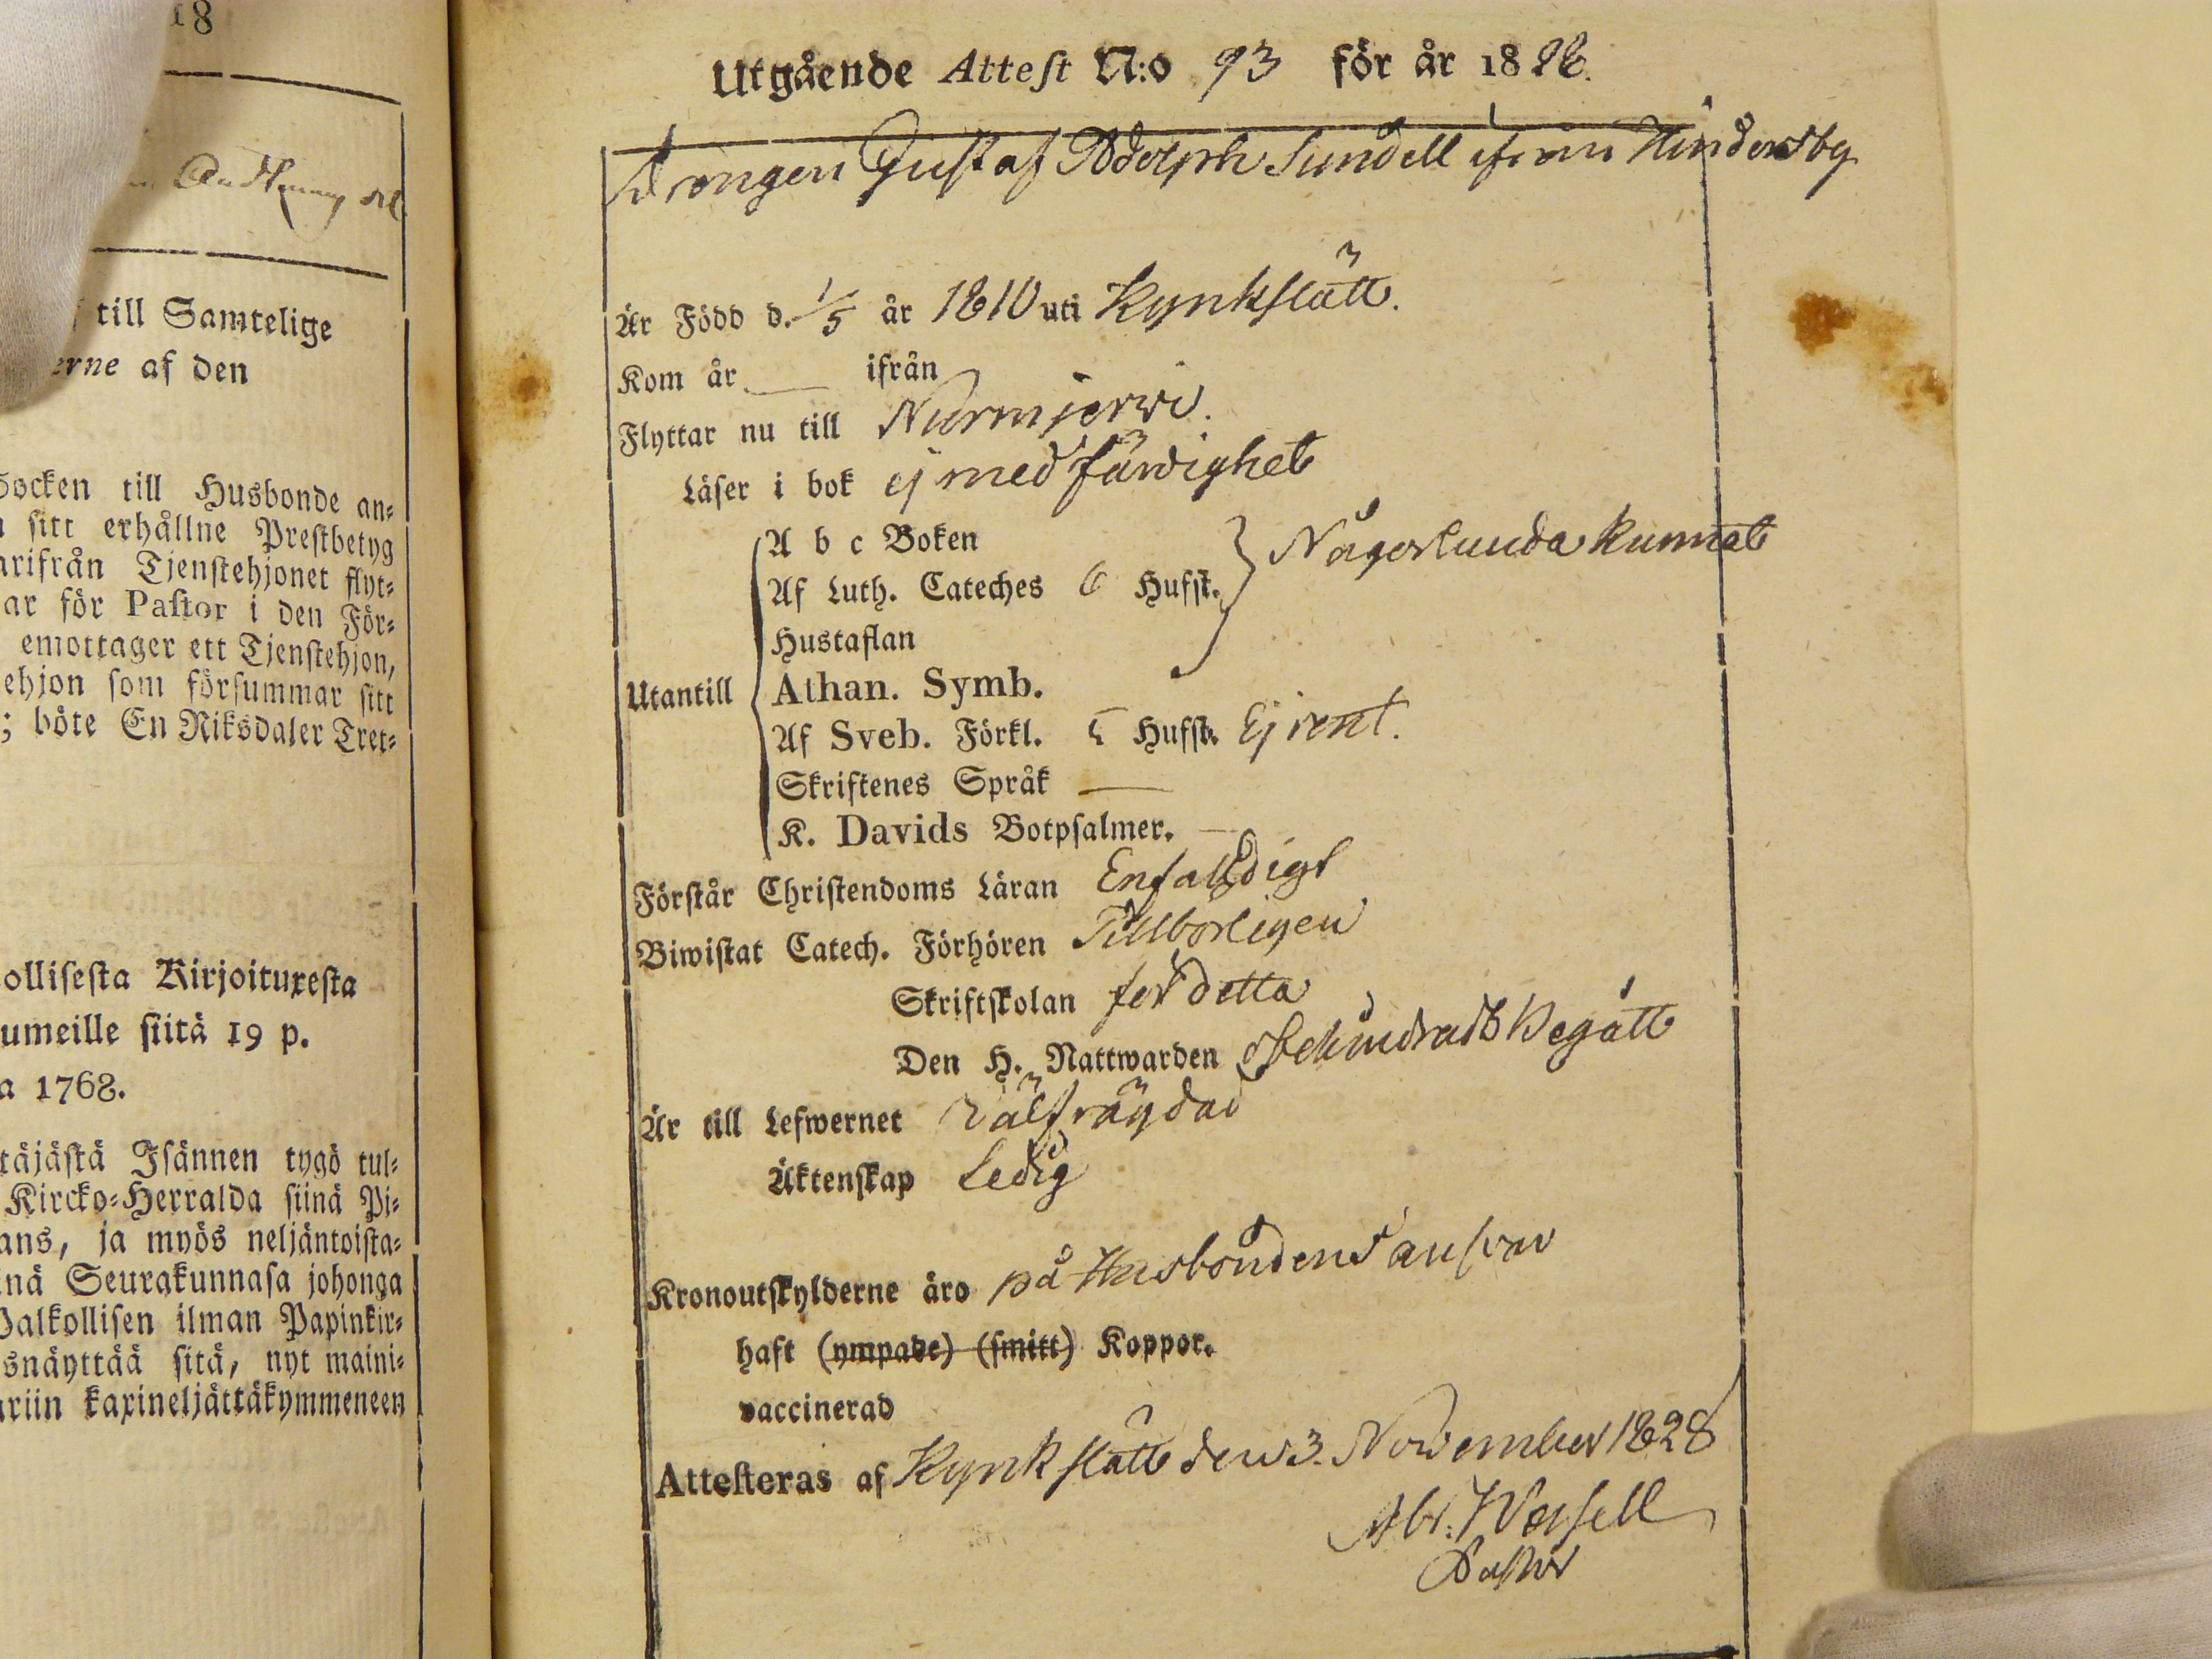 18
till Samtelige
erne af den
Socken till Husbonde an-
sitt erhållne Prestbetyg
arifrån Tjenstehjonet flyt-
ar för Pastor i den För-
emottager ett Tjenstehjon,
ehjon som försummar sitt
; böte En Riksdaler Tret-
ollisesta Kirjoituxesta
umeille siitä 19 p.
a 1768.
täjästä Isännen tygö tul-
Kircko-Herralda siinä Pi-
ans, ja myös neljäntoista-
inä Seurakunnasa johonga
Palkollisen ilman Papinkir-
snäyttää sitä, nyt maini-
ariin kaxineljättäkymmeneen
Utgående Attest N:o 93 för år 1828.
Drängen Gustaf Adolph Sundell ifrån Hindersby
Är Född d. 1/5 år 1810 uti Kyrkslätt.
Kom år — ifrån
Flyttar nu till Nurmijerwi.
Läser i bok ej med färdighet
A b c Boken
Af Luth. Cateches 6 Hufst. } Någorlunda kunnat
Hustaflan
Utantill { Athan. Symb.
Af Sveb. Förkl. 5 Hufst. Ej rent.
Skriftenes Språk —
K. Davids Botpsalmer. —
Förstår Christendoms Läran Enfaldigt
Biwistat Catech. Förhören Tillbörligen
Skriftskolan för detta
Den H. Nattwarden obehindradt Begått
Är till Lefwernet Välfrägdad
Äktenskap Ledig
Kronoutskylderne äro på Husbondens ansvar
haft (ympade) (smitt) Koppor.
vaccinerad
Attesteras af Kyrkslätt den 3. November 1828
Abr. Wessell
Pastor